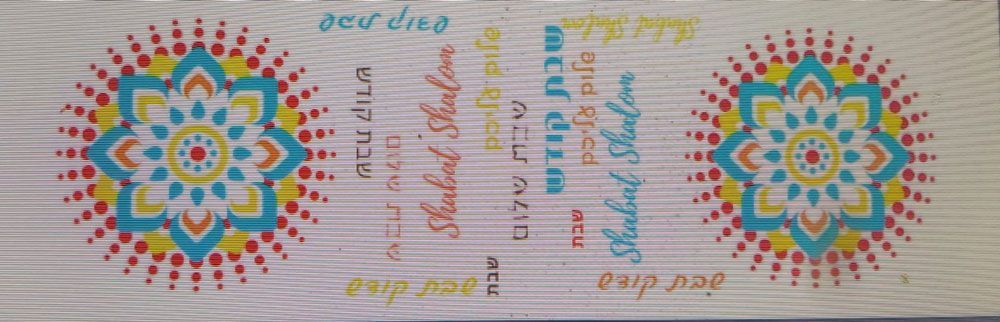 שבת קודש
Shabat Shalom
שבת קודש
שבת שלום
Shabat Shalom
שלום עליכם
שבת שלום
שבת קודש
שלום עליכם
Shabat Shalom
שבת קודש
שבת
שבת
שבת קודש